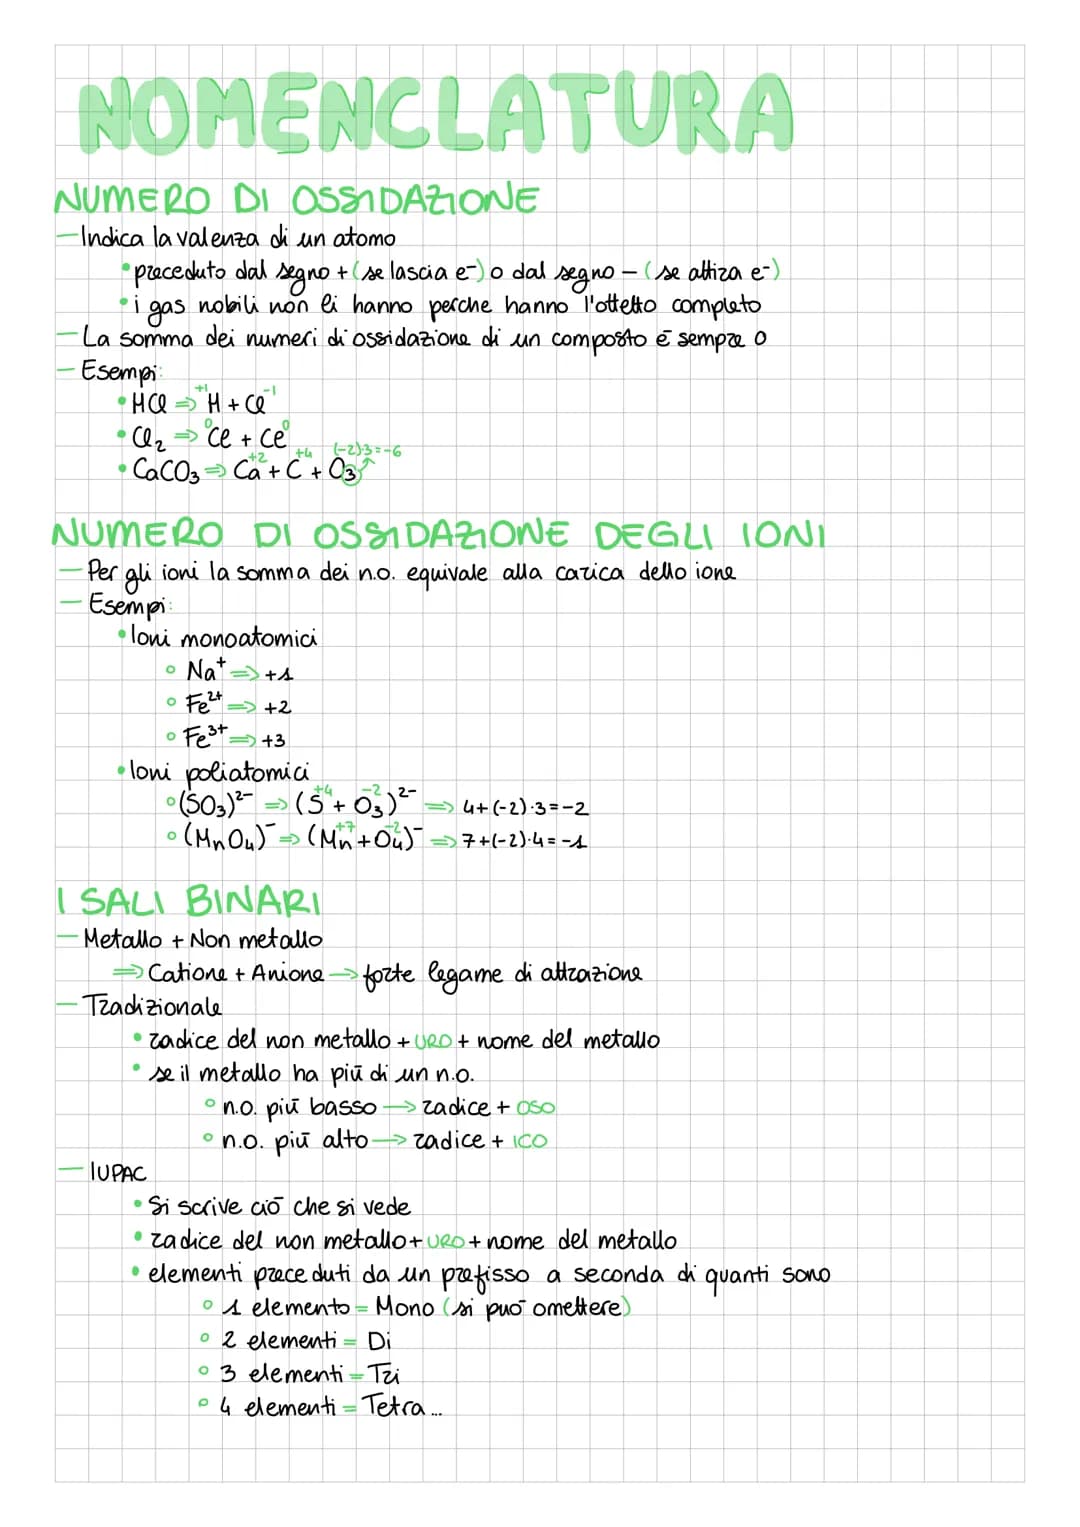 NOMENCLATURA
NUMERO DI OSSIDAZIONE
— Indica la valenza di un atomo
• preceduto dal segno + (se lascia e⁻) o dal segno – (se attira e⁻)
• i gas nobili non li hanno perche hanno l'ottetto completo
— La somma dei numeri di ossidazione di un composto é sempre 0
— Esempi:
• HCl ⇒ ⁺¹H + Cl⁻¹
• Cl₂ ⇒ ⁰Cl + Cl⁰
+2 +4 (-2)·3=-6
• CaCO₃ ⇒ Ca + C + O₃
NUMERO DI OSSIDAZIONE DEGLI IONI
— Per gli ioni la somma dei n.o. equivale alla carica dello ione
— Esempi:
• Ioni monoatomici
◦ Na⁺ ⇒ +1
◦ Fe²⁺ ⇒ +2
◦ Fe³⁺ ⇒ +3
• Ioni poliatomici
+4 -2
◦ (SO₃)²⁻ ⇒ (S + O₃)²⁻ ⇒ 4+(-2)·3=-2
+7 -2
◦ (MnO₄)⁻ ⇒ (Mn+O₄)⁻ ⇒ 7+(-2)·4=-1
I SALI BINARI
— Metallo + Non metallo
⇒ Catione + Anione → forte legame di attrazione
— Tradizionale
• radice del non metallo + URO + nome del metallo
• se il metallo ha piū di un n.o.
◦ n.o. piū basso → radice + OSO
◦ n.o. piū alto → radice + ICO
— IUPAC
• Si scrive ciō che si vede
• radice del non metallo + URO + nome del metallo
• elementi preceduti da un prefisso a seconda di quanti sono
◦ 1 elemento = Mono (si puō omettere)
◦ 2 elementi = Di
◦ 3 elementi = Tri
◦ 4 elementi = Tetra...